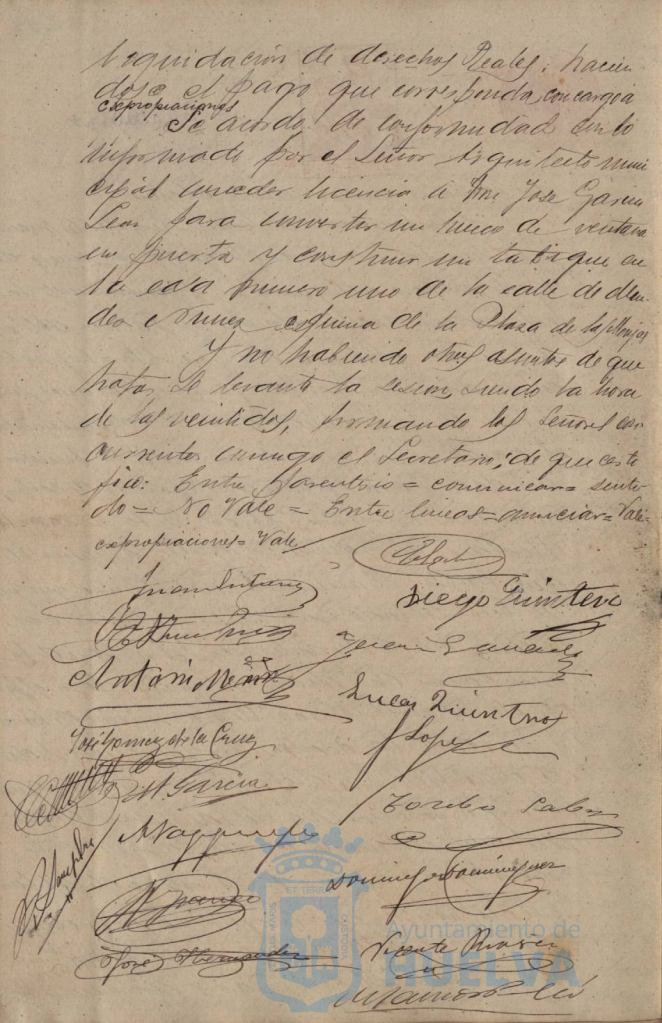 liquidación de derechos Reales; hacien
dose el pago que corresponda, con cargo a
expropiaciones
Se acordo de conformidad con lo
informado por el Señor Arquitecto muni
cipal conceder licencia a Don Jose Garcia
Leon para convertir un hueco de ventana
en puerta y construir un tabique en
la casa numero uno de la calle de Men
dez Nuñez esquina de la Plaza de las Monjas
Y no habiendo otros asuntos de que
tratar, se levantó la sesion, siendo la hora
de las veintidos, firmando los Señores con
currentes conmigo el Secretario; de que certi
fico: Entre parentesis = comunicar =
do = No Vale = Entre lineas = anunciar = Vale
expropiaciones = Vale
Juan Quintero
Diego Quintero
Antonio
Lucas Quintero
J Lopez
José Gomez de la Cruz
Garcia
Toribio
Domingo Dominguez
José Hernandez
Vicente
Ayuntamiento de
HUELVA